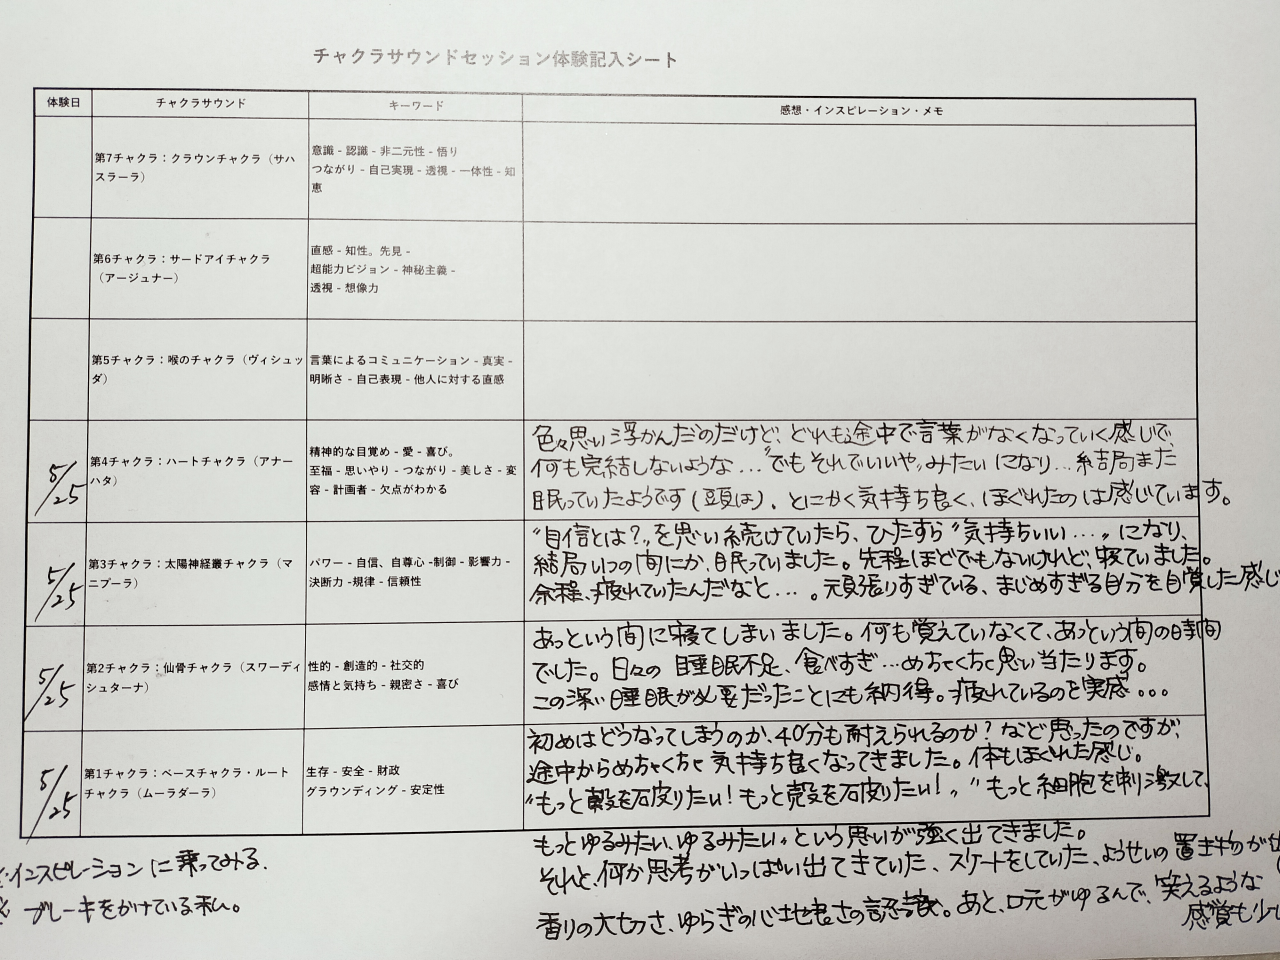 チャクラサウンドセッション体験記入シート
体験日 チャクラサウンド キーワード 感想・インスピレーション・メモ
第7チャクラ：クラウンチャクラ（サハスラーラ）
意識 - 認識 - 非二元性 - 悟り
つながり - 自己実現 - 透視 - 一体性 - 知恵
第6チャクラ：サードアイチャクラ
（アージュナー）
直感 - 知性。先見 -
超能力ビジョン - 神秘主義 -
透視 - 想像力
第5チャクラ：喉のチャクラ（ヴィシュッダ）
言葉によるコミュニケーション - 真実 -
明晰さ - 自己表現 - 他人に対する直感
5/25
第4チャクラ：ハートチャクラ（アナーハタ）
精神的な目覚め - 愛 - 喜び。
至福 - 思いやり - つながり - 美しさ - 変容 - 計画者 - 欠点がわかる
色々思い浮かんだのだけど、どれも途中で言葉がなくなっていく感じで、
何も完結しないような…“でもそれでいいや〟みたいになり…結局また
眠っていたようです（頭は）。とにかく気持ち良く、ほぐれたのは感じています。
5/25
第3チャクラ：太陽神経叢チャクラ（マニプーラ）
パワー - 自信、自尊心 -制御 - 影響力 -
決断力 -規律 - 信頼性
“自信とは？〟を思い続けていたら、ひたすら“気持ちいい…〟になり、
結局いつの間にか、眠っていました。先程ほどでもないけれど、寝ていました。
余程、疲れていたんだなと…。元頑張りすぎている、まじめすぎる自分を自覚した感じ
5/25
第2チャクラ：仙骨チャクラ（スワーディシュターナ）
性的 - 創造的 - 社交的
感情と気持ち - 親密さ - 喜び
あっという間に寝てしまいました。何も覚えていなくて、あっという間の時間
でした。日々の睡眠不足、食べすぎ…めちゃくちゃ思い当たります。
この深い睡眠が必要だったことにも納得。疲れているのを実感…
5/25
第1チャクラ：ベースチャクラ・ルートチャクラ（ムーラダーラ）
生存 - 安全 - 財政
グラウンディング - 安定性
初めはどうなってしまうのか、40分も耐えられるのか？など思ったのですが、
途中からめちゃくちゃ気持ち良くなってきました。体もほぐれた感じ。
“もっと殻を破りたい！もっと殻を破りたい！〟“もっと細胞を刺激して、
もっとゆるみたい、ゆるみたい〟という思いが強く出てきました。
それと、何か思考がいっぱい出てきていた、スケートをしていた、ようせいの置き物が
香りの大切さ、ゆらぎの心地良さの認識。あと、口元がゆるんで、笑えるような
感覚も少し
※・インスピレーションに乗ってみる。
※ ブレーキをかけている私。